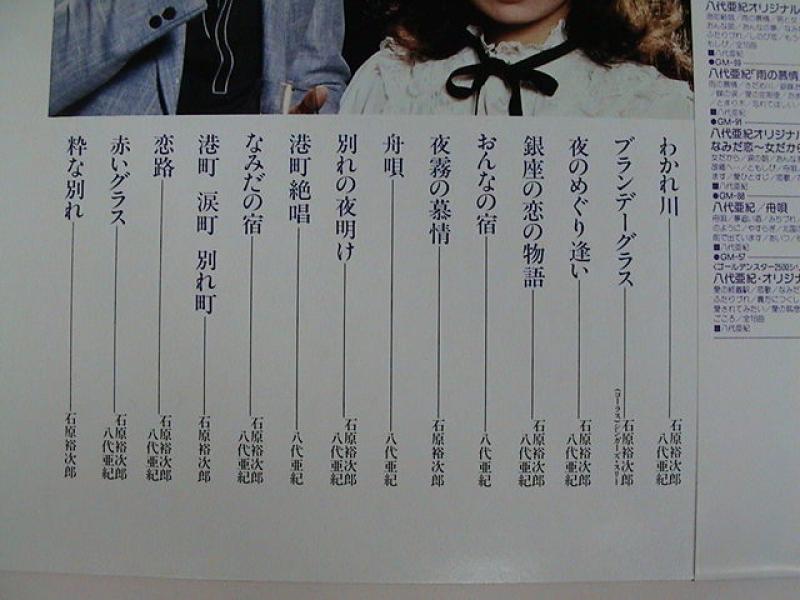 わかれ川 石原裕次郎 八代亜紀
ブランデーグラス 石原裕次郎
夜のめぐり逢い 石原裕次郎 八代亜紀
銀座の恋の物語 石原裕次郎 八代亜紀
おんなの宿 八代亜紀
夜霧の慕情 石原裕次郎
舟唄 八代亜紀
別れの夜明け 石原裕次郎 八代亜紀
港町絶唱 八代亜紀
なみだの宿 石原裕次郎 八代亜紀
港町 涙町 別れ町 石原裕次郎
恋路 石原裕次郎 八代亜紀
赤いグラス 石原裕次郎 八代亜紀
粋な別れ 石原裕次郎
八代亜紀オリジナル
■八代亜紀
●GM-99
八代亜紀「雨の慕情
■八代亜紀
●GM-91
八代亜紀オリジナル
なみだ恋〜女だから
■八代亜紀
●GM-88
八代亜紀/舟唄
■八代亜紀
●GM-57
八代亜紀・オリジナ
■八代亜紀